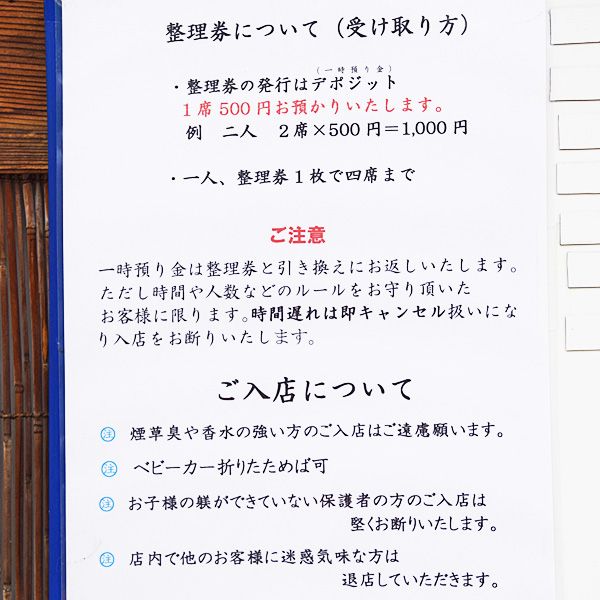 整理券について（受け取り方）
（一時預り金）
・整理券の発行はデポジット
1席500円お預かりいたします。
例　二人　2席×500円＝1,000円
・一人、整理券1枚で四席まで
ご注意
一時預り金は整理券と引き換えにお返しいたします。
ただし時間や人数などのルールをお守り頂いた
お客様に限ります。時間遅れは即キャンセル扱いにな
り入店をお断りいたします。
ご入店について
注 煙草臭や香水の強い方のご入店はご遠慮願います。
注 ベビーカー折りたためば可
注 お子様の躾ができていない保護者の方のご入店は
堅くお断りいたします。
注 店内で他のお客様に迷惑気味な方は
退店していただきます。